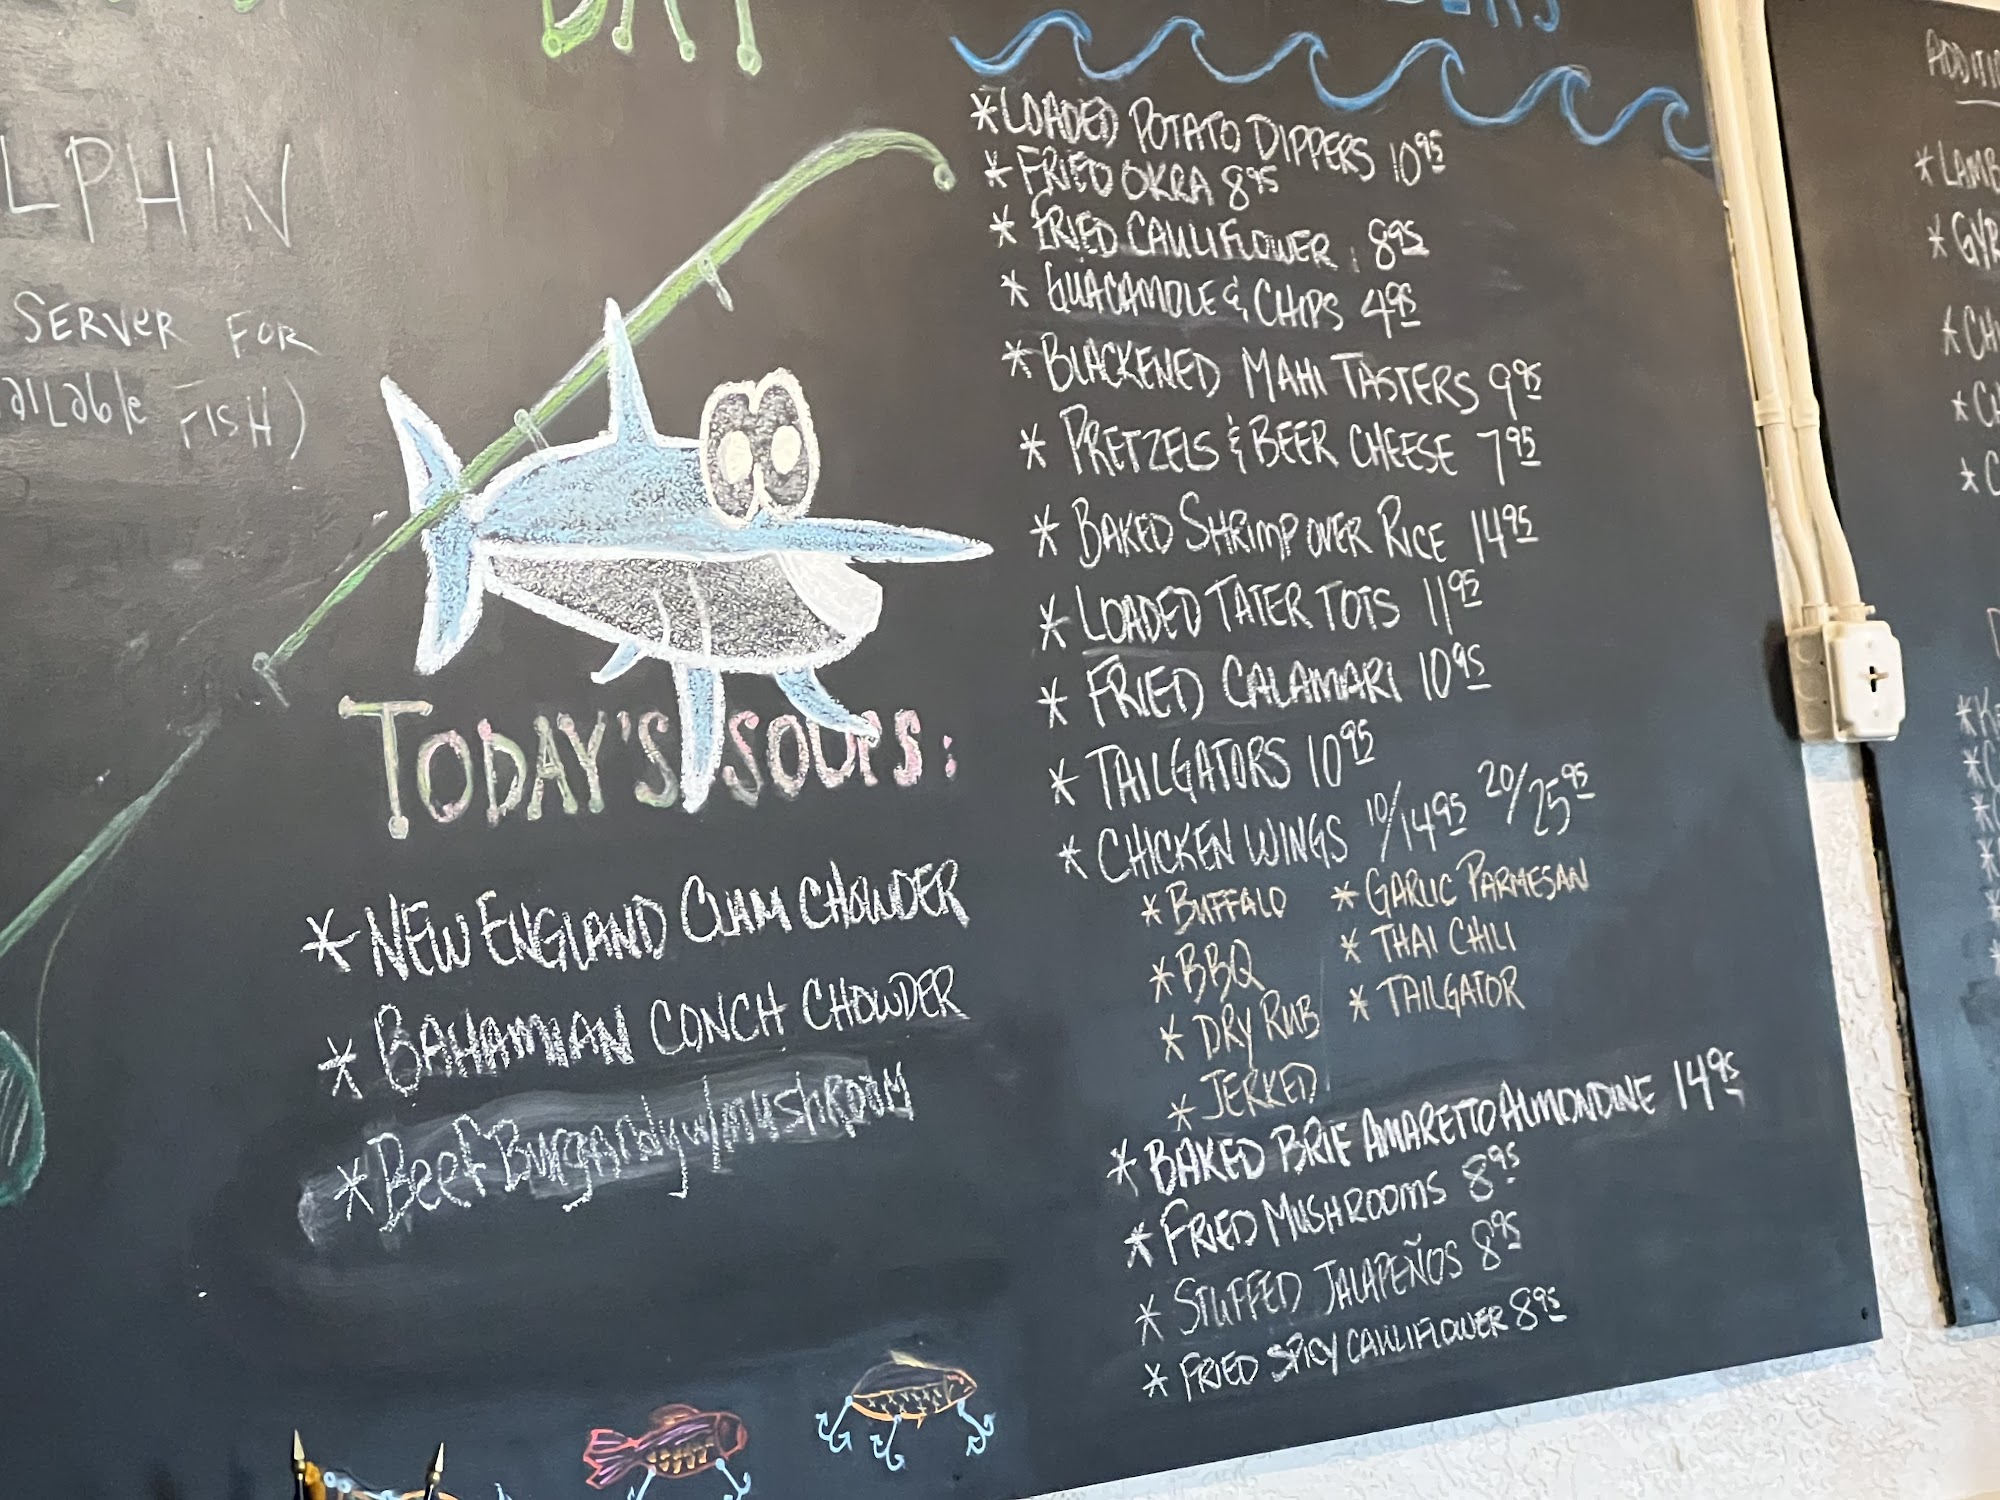 DAY
LPHIN
SERVER FOR
ailable FISH)
TODAY'S SOUPS:
*NEW ENGLAND CLAM CHOWDER
*BAHAMIAN CONCH CHOWDER
*Beef Burgandy w/mushroom
*LOADED POTATO DIPPERS 10 95
*FRIED OKRA 8 95
*FRIED CAULIFLOWER 8 95
*GUACAMOLE & CHIPS 4 95
*BLACKENED MAHI TASTERS 9 95
*PRETZELS & BEER CHEESE 7 95
*BAKED SHRIMP OVER RICE 14 95
*LOADED TATER TOTS 11 95
*FRIED CALAMARI 10 95
*TAILGATORS 10 95
*CHICKEN WINGS 10/14 95 20/25 95
*BUFFALO *GARLIC PARMESAN
*BBQ *THAI CHILI
*DRY RUB *TAILGATOR
*JERKED
*BAKED BRIE AMARETTO ALMONDINE 14 95
*FRIED MUSHROOMS 8 95
*STUFFED JALAPEÑOS 8 95
*FRIED SPICY CAULIFLOWER 8 95
ADDITIO
*LAMB
*GYR